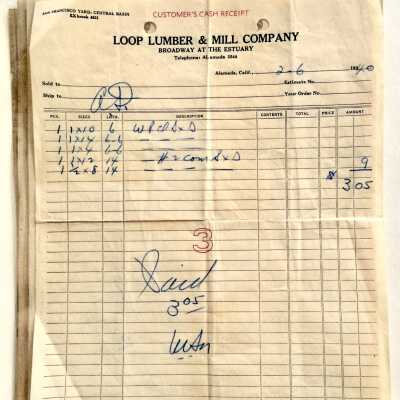 SAN FRANCISCO YARD: CENTRAL BASIN
CUSTOMER'S CASH RECEIPT
LOOP LUMBER & MILL COMPANY
BROADWAY AT THE ESTUARY
Telephone: Alameda
Alameda, Calif., 2-6 1940
Sold to
Estimate No.
Ship to
Your Order No.
PCS. SIZES LGTH. DESCRIPTION CONTENTS TOTAL PRICE AMOUNT
1 1x10 6
1 1x14 6-6
1 1x4 6-6
1 1x12 14 #2 com 9
1 1/2 x 8 14
3.05
3
Paid
3.05